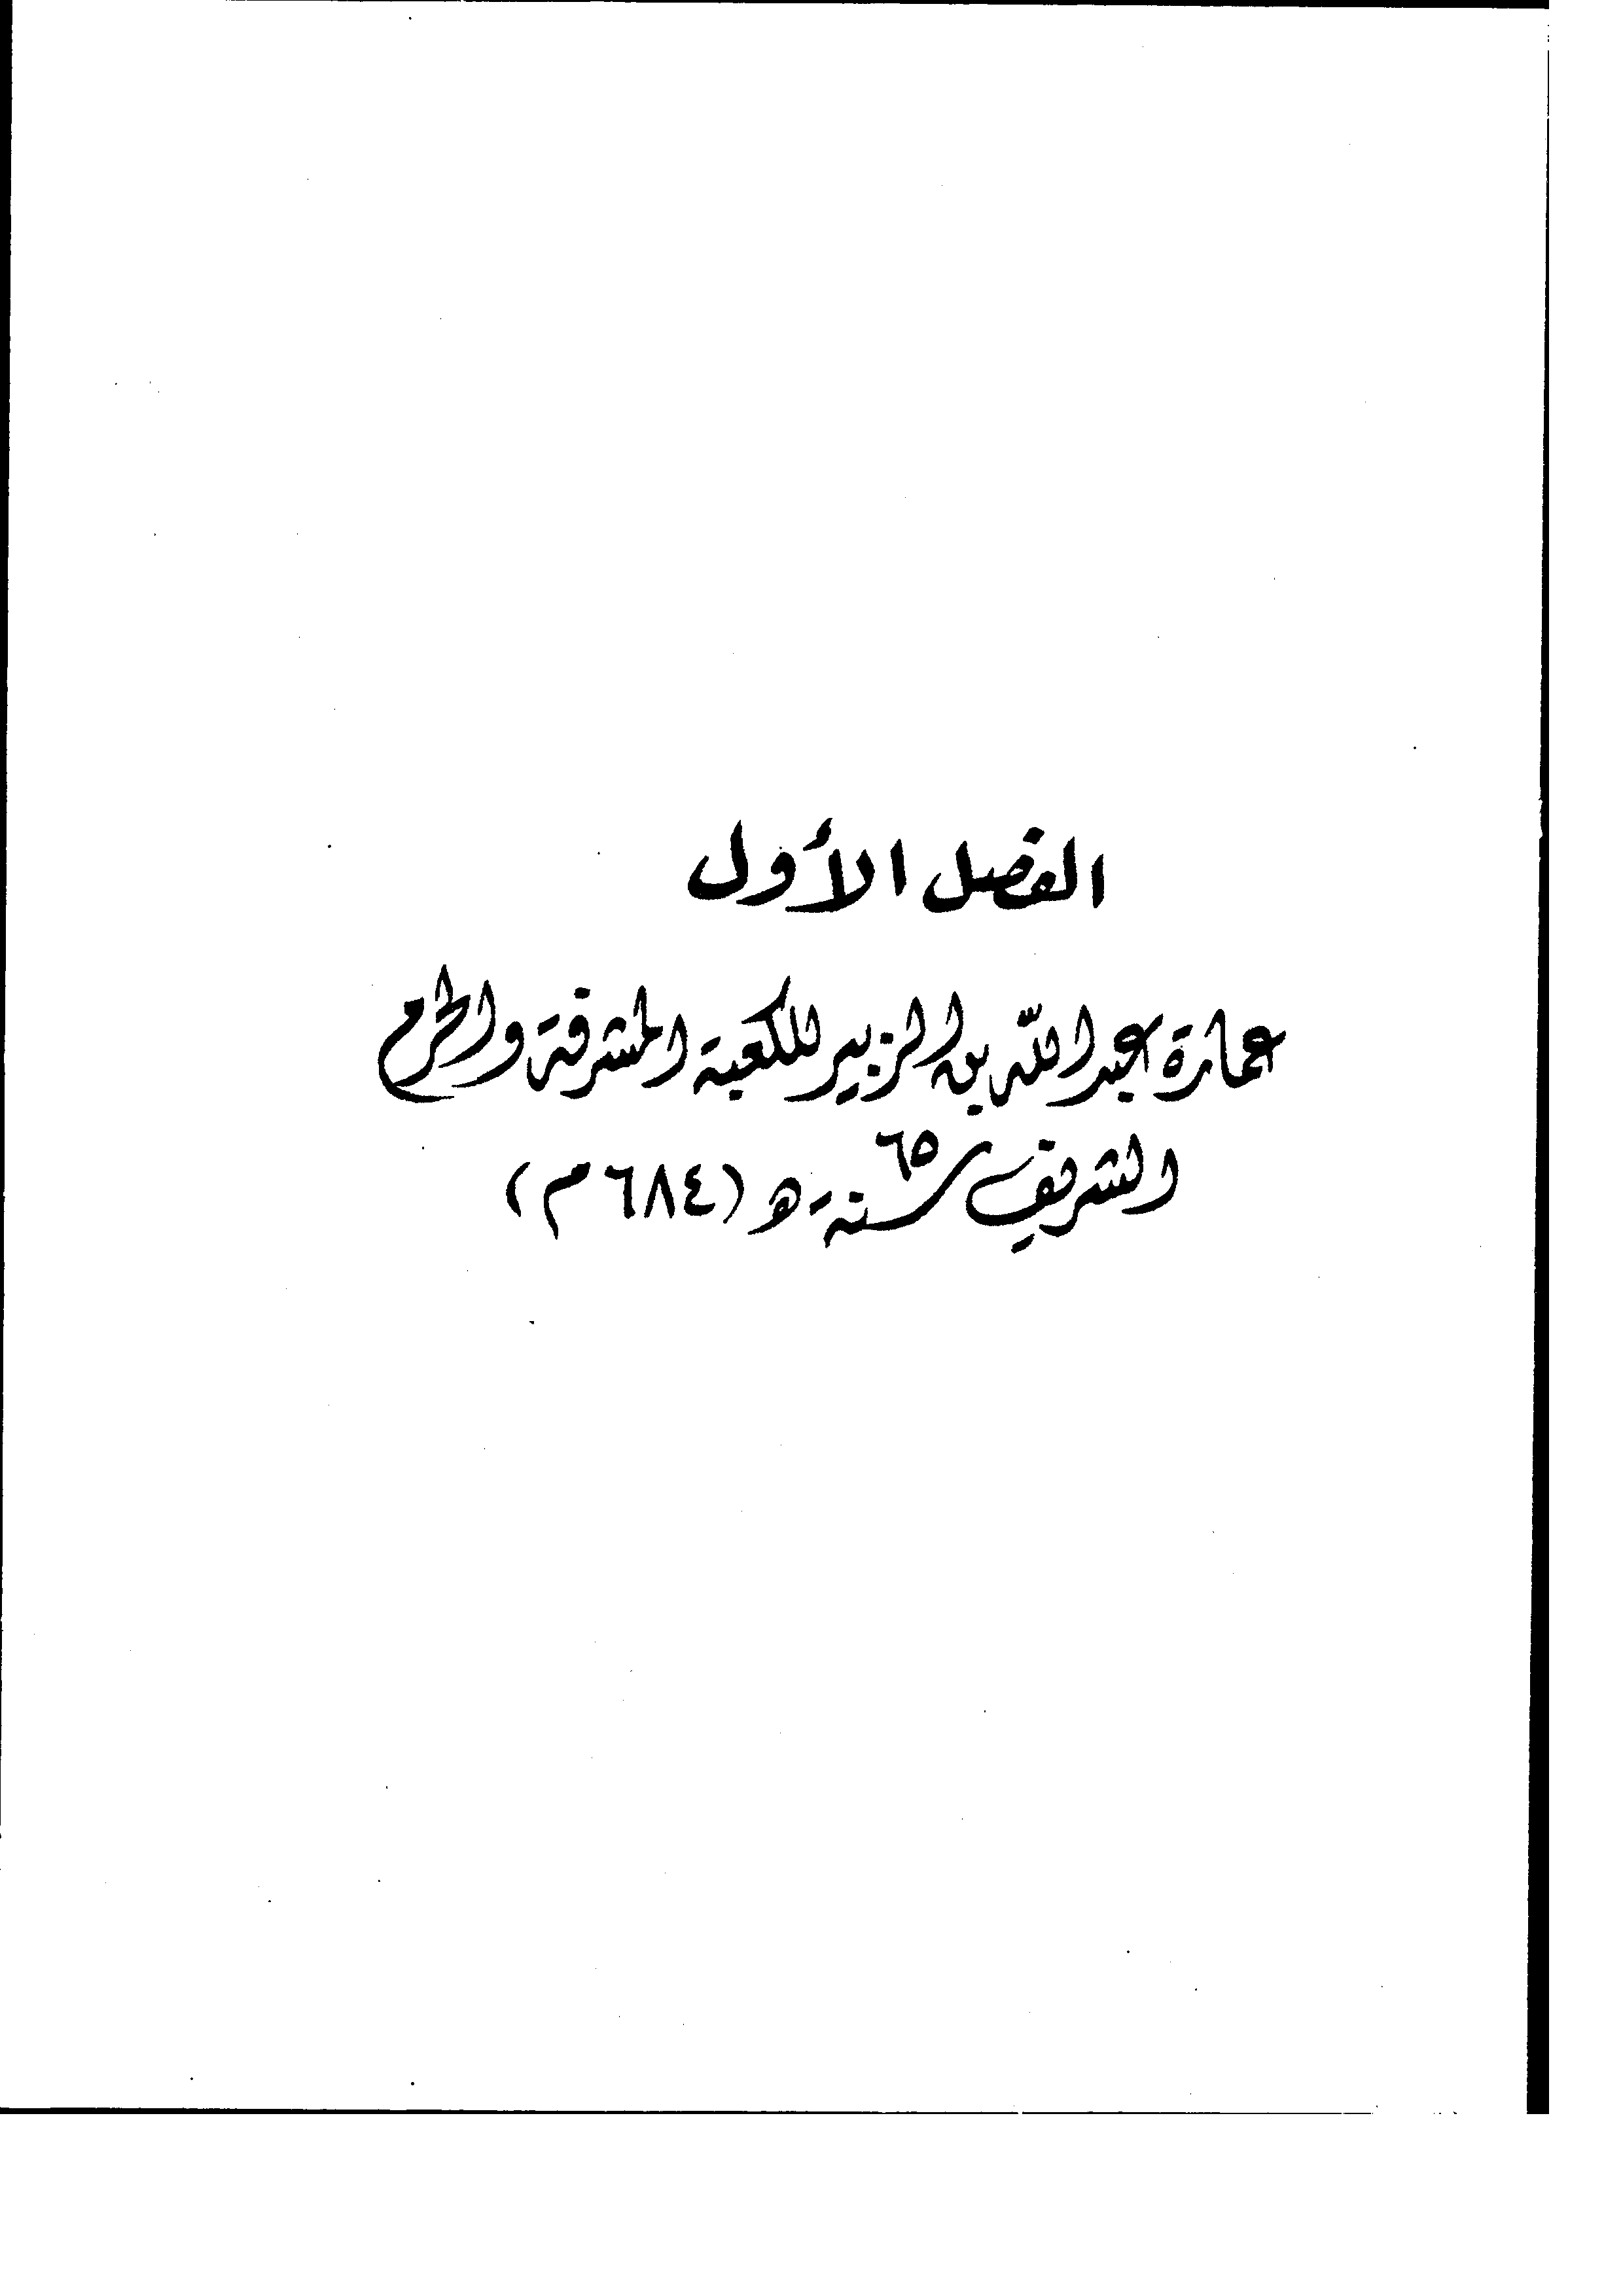 الفصل الأول
عمارة عبد الله بن الزبير للكعبة المشرفة والحرم
الشريف سنة ٦٥ هـ (٦٨٤ م)